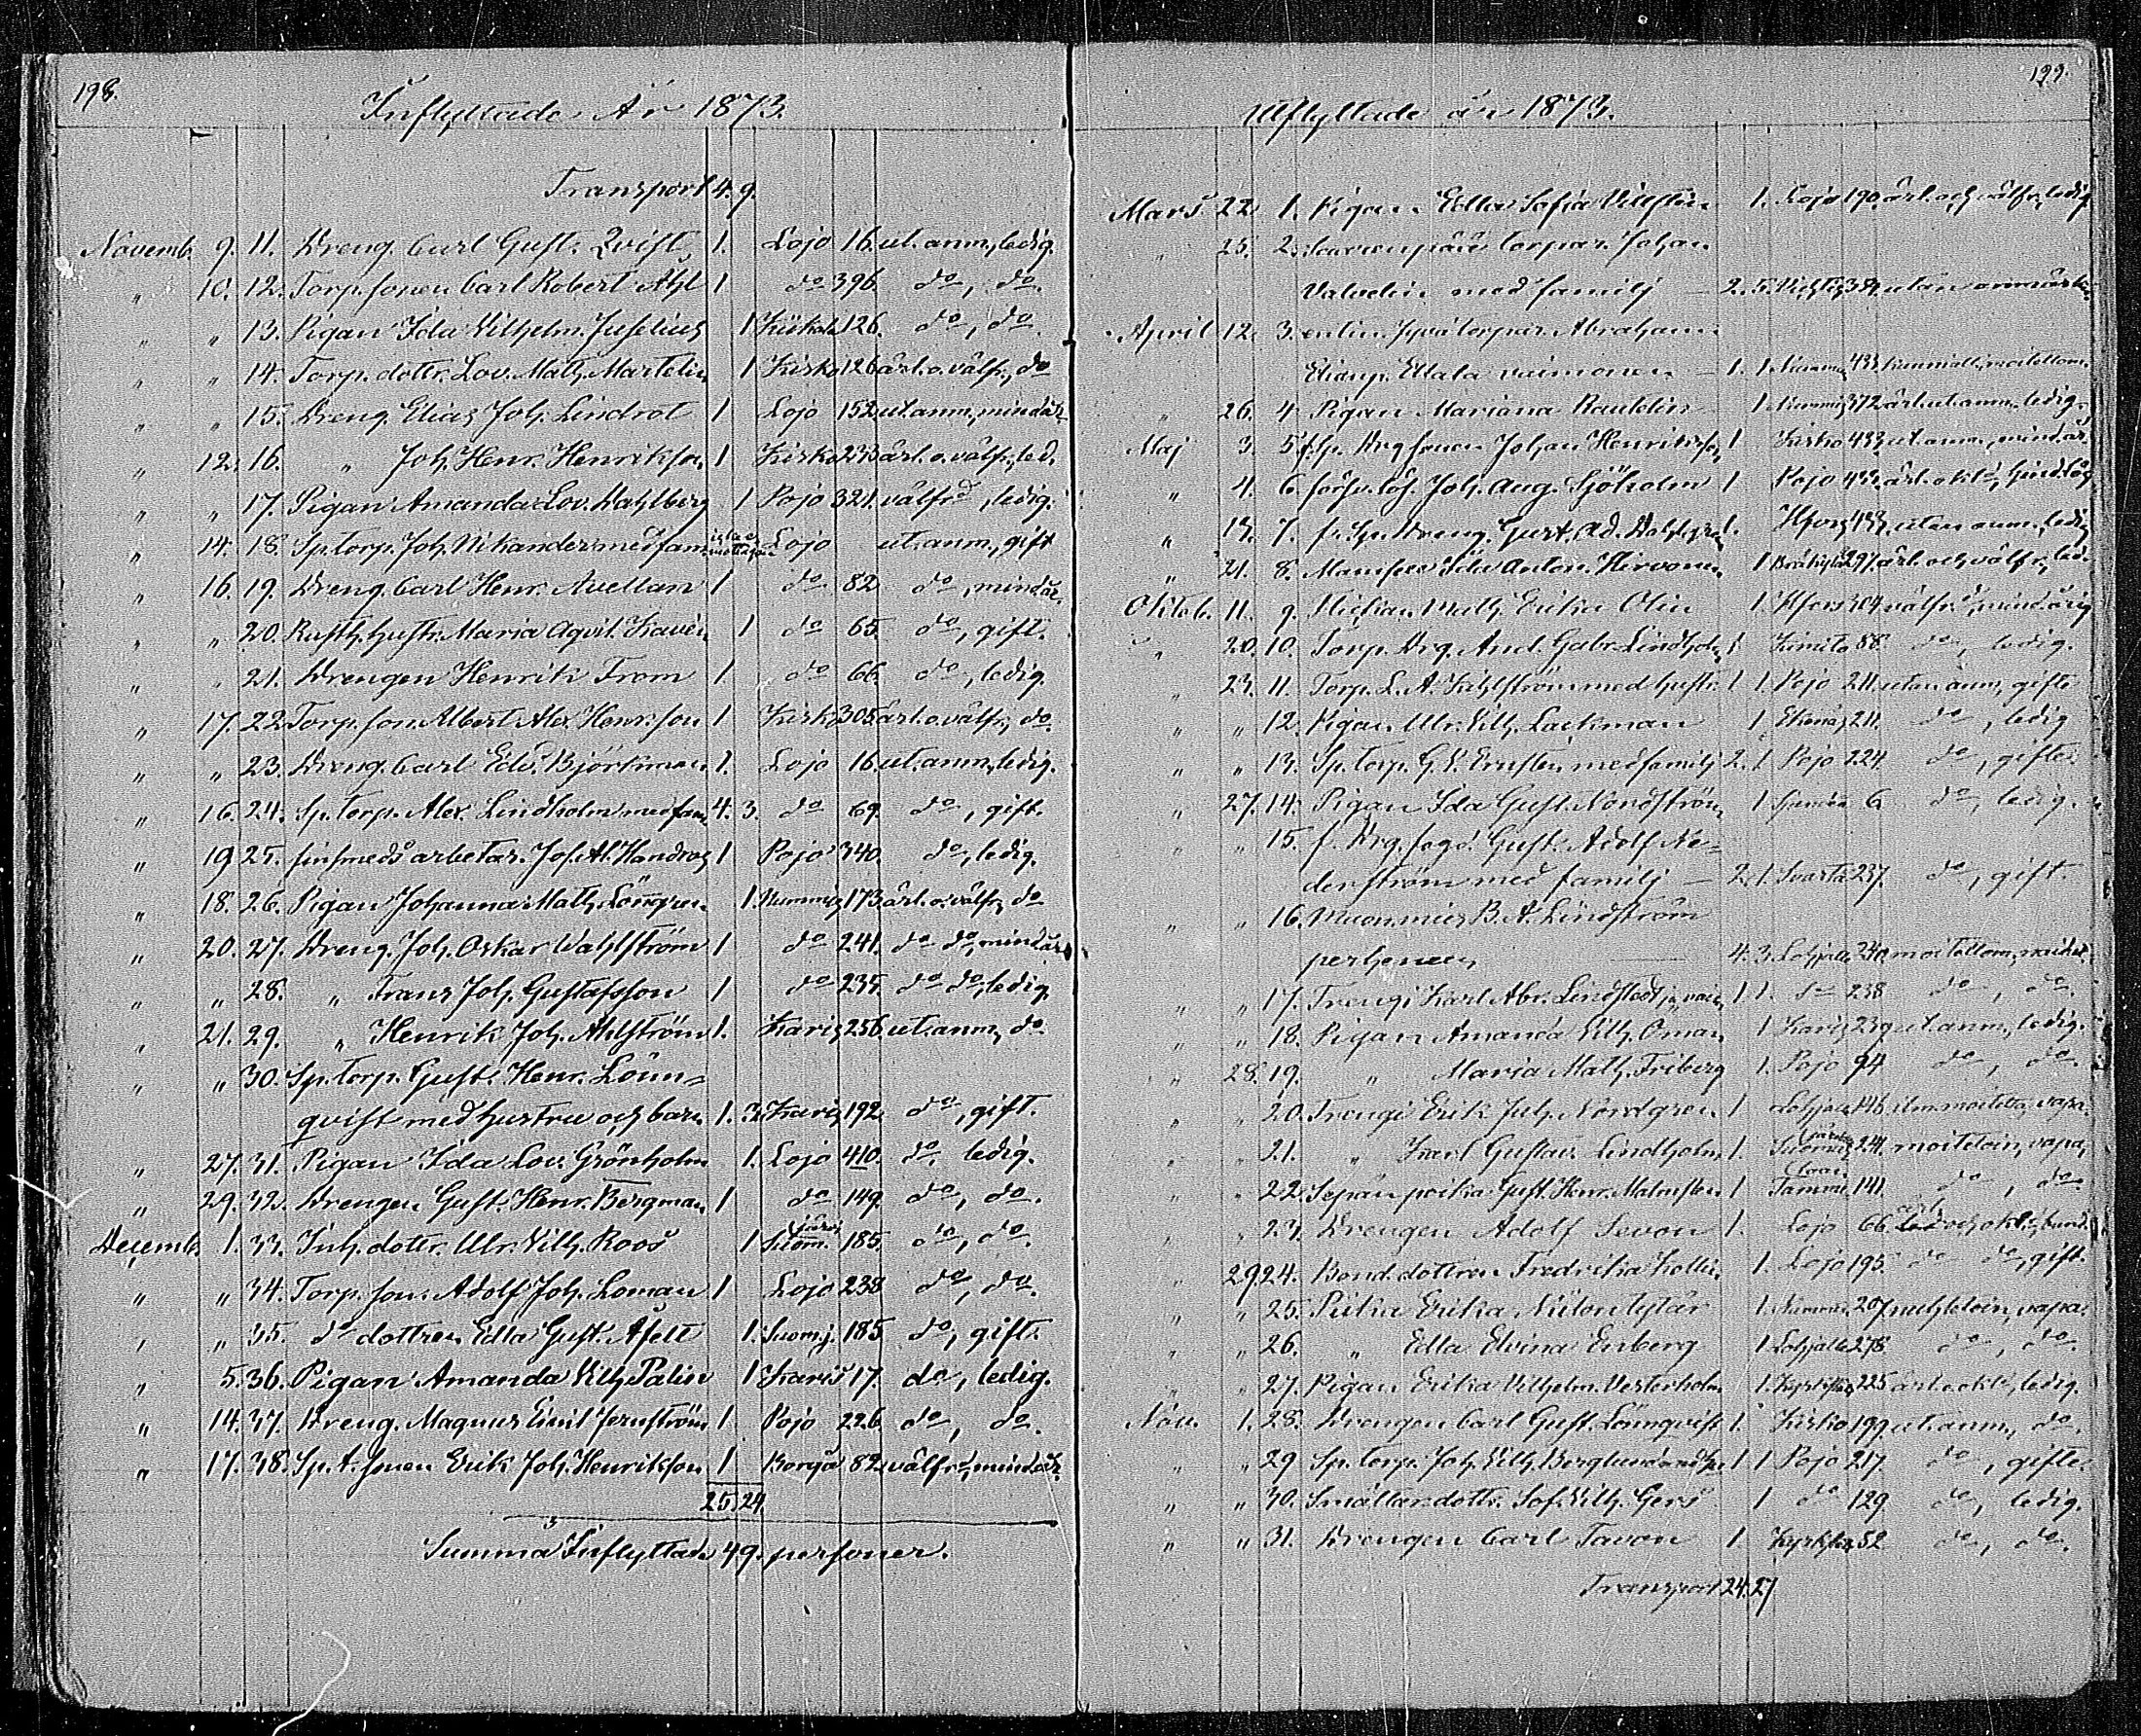 198.
Inflyttade År 1873.
Transport 4. 9.
Novemb. 9. 11. Dreng. Carl Gust. Qvist, 1. Lojo 16. ut. anm., ledig.
" 10. 12. Torp. sonen Carl Robert Ahl 1 do 396. do, do.
" " 13. Pigan Ida Vilhelm. Juselius 1 Kiikala 126. do, do.
" " 14. Torp. dottr. Lov. Math. Martelin 1 Kisko 126 ärl. o. välfr., do
" " 15. Dreng. Elias Joh. Lindrot 1 Lojo 152. ut. anm., mindår.
" 12. 16. " Joh. Henr. Henriksson 1 Kisko 233 ärl. o. välfr., led.
" " 17. Pigan Amanda Lov. Dahlberg 1 Pojo 321. välfrd, ledig.
" 14. 18. Sp. torp. Joh. Nikander med fam. Lojo ut. anm., gift
" 16. 19. Dreng. Carl Henr. Avellan 1 do 82 do, mindår.
" " 20. Rusth. hustr. Maria Aqvil. Kavén 1 do 65 do, gift.
" " 21. Drengen Henrik From 1 do 66. do, ledig.
" 17. 22. Torp. son. Albert Alex. Henr.son 1 Kisko 305 ärl. o. välfr., do.
" " 23. Dreng. Carl Edv. Björkman 1. Lojo 16. ut. anm., ledig.
" 16. 24. Sp. torp. Alex. Lindholm med fam. 4. 3. do 69. do, gift.
" 19 25. finsmeds arbetar. Jos. Al. Handros 1 Pojo 340. do, ledig.
" 18. 26. Pigan Johanna Math. Löngren 1. Nummis 173. ärl. o. välfr., do
" 20. 27. Dreng. Joh. Oskar Wahlström 1 do 241. do do, mindår.
" " 28. " Frans Joh. Gustafsson 1 do 235. do do, ledig.
" 21. 29. " Henrik Joh. Ahlström 1. Karis 256 ut. anm., do
" " 30. Sp. torp. Gust. Henr. Lönn-
qvist med hustru och barn 1. 3. Karis 192. do, gift.
" 27. 31. Pigan Ida Lov. Grönholm 1. Lojo 410. do. ledig.
" 29. 32. Drengen Gust. Henr. Bergman 1 do 149. do, do.
Decemb. 1. 33. Inh. dottr. Ulr. Vilh. Roos 1 Suom. järvi 185. do, do.
" " 34. Torp. son. Adolf Joh. Loman 1 Lojo 238 do, do.
" " 35. do dottren Edla Gust. Aselt 1. Suomj. 185 do, gift.
" 5. 36. Pigan Amanda Vilh. Palin 1 Karis 17. do, ledig.
" 14. 37. Dreng. Magnus Emil Jernström 1 Pojo 226 do, do.
" 17. 38. Sp. t. sonen Erik Joh. Henriksson 1 Borgå 82. välfrd, mindår.
25. 24.
Summa Inflyttade 49. personer.
199.
Utflyttade år 1873.
Mars 22 1. Pigan Edla Sofia 1. Lojo 190. ärl. och välfr., ledig
" 25. 2. torpar. Johan
med familj 2. 5. utan anmärkn.
April 12. 3. torpar. Abraham
vaimonen 1. 1
" 26. 4 Pigan Mariana Rautelin 1 Nummis 372 ärl. ut. anm., ledig.
Maj 3. 5. Drg sonen Johan Henriksson 1 Kisko 433. ut. anm., mindår.
" 4. 6. Joh. Aug. Sjöholm 1 Pojo 433.
" 13. 7. f. Sp. Dreng. Gust. Ad. 1. Hfors 433. utan anm., ledig
" 21. 8. Mamsell Ida Anton. Hirvonen 1 297. ärl. och välfr., led.
Oktob. 11. 9. Flickan Math. Erika Olin 1. Hfors 304 välfrd, mindårig
" 20. 10. Torp. Drg. And. Gabr. Lindholm 1 Kimito 88. do, ledig.
" 23. 11. Torp. L. A. Kihlström med hustr. 1 1. Pojo 211. utan anm., gifte
" " 12. Pigan Ulr. Vilh. Lackman 1. Ekenäs 211. do, ledig
" " 13. Sp. torp. G. V. Ernsten med familj 2. 1 Pojo 224. do, gifte.
" 27. 14. Pigan Ida Gust. Nordström 1 6. do, ledig.
" " 15. f. Drg. Gust. Adolf Ne-
derström med familj 2. 1. Svartå 237. do, gift.
" " 16. Muon. mies B. A. Lindström
perheneen 4. 3. Lohjalle 240. moitettom.,
" " 17. Trengi Karl Abr. Lindstedt ja vaim. 1 1. do 238 do, do.
" " 18. Pigan Amanda Vilh. Öman 1 Karis 239. ut. anm., ledig.
" 28. 19. " Maria Math. Friberg 1. Pojo 94 do, do.
" " 20. Trengi Erik Joh. Nordgren 1 Lohjalle 146. ilm. moitetta, vapa.
" " 21. " Karl Gustav Lindholm 1. Suomus järvi 241. moitetoin, vapa,
" " 22. Sepän poika Gust. Henr. Malmsten 1 Tammi 141. do, do
" " 23. Drengen Adolf Sevon 1. Lojo 66. och
" 29. 24. Bond. dottren Fredrika 1. Lojo 195. do do, gift.
" " 25. Piika Erika Niilontytär 1. Nummi 207. nuhtetoin, vapa.
" " 26. " Edla Elvina Enberg 1 Lohjalle 278 do, do.
" " 27. Pigan Erika Vilhelm. Vesterholm 1. Kyrkslätt 225 ledig.
Nov. 1. 28. Drengen Carl Gust. Lönnqvist 1. Kisko 199. ut. anm., do.
" " 29 Sp. torp. Joh. Vilh. Berglund 1 1 Pojo 217. do, gifte.
" " 30. dottr. Sof. Vilh. Gers 1 do 129 do, ledig.
" " 31. Drengen Carl Tavon 1. Kyrkslätt 52 do, do.
Transport 24. 27